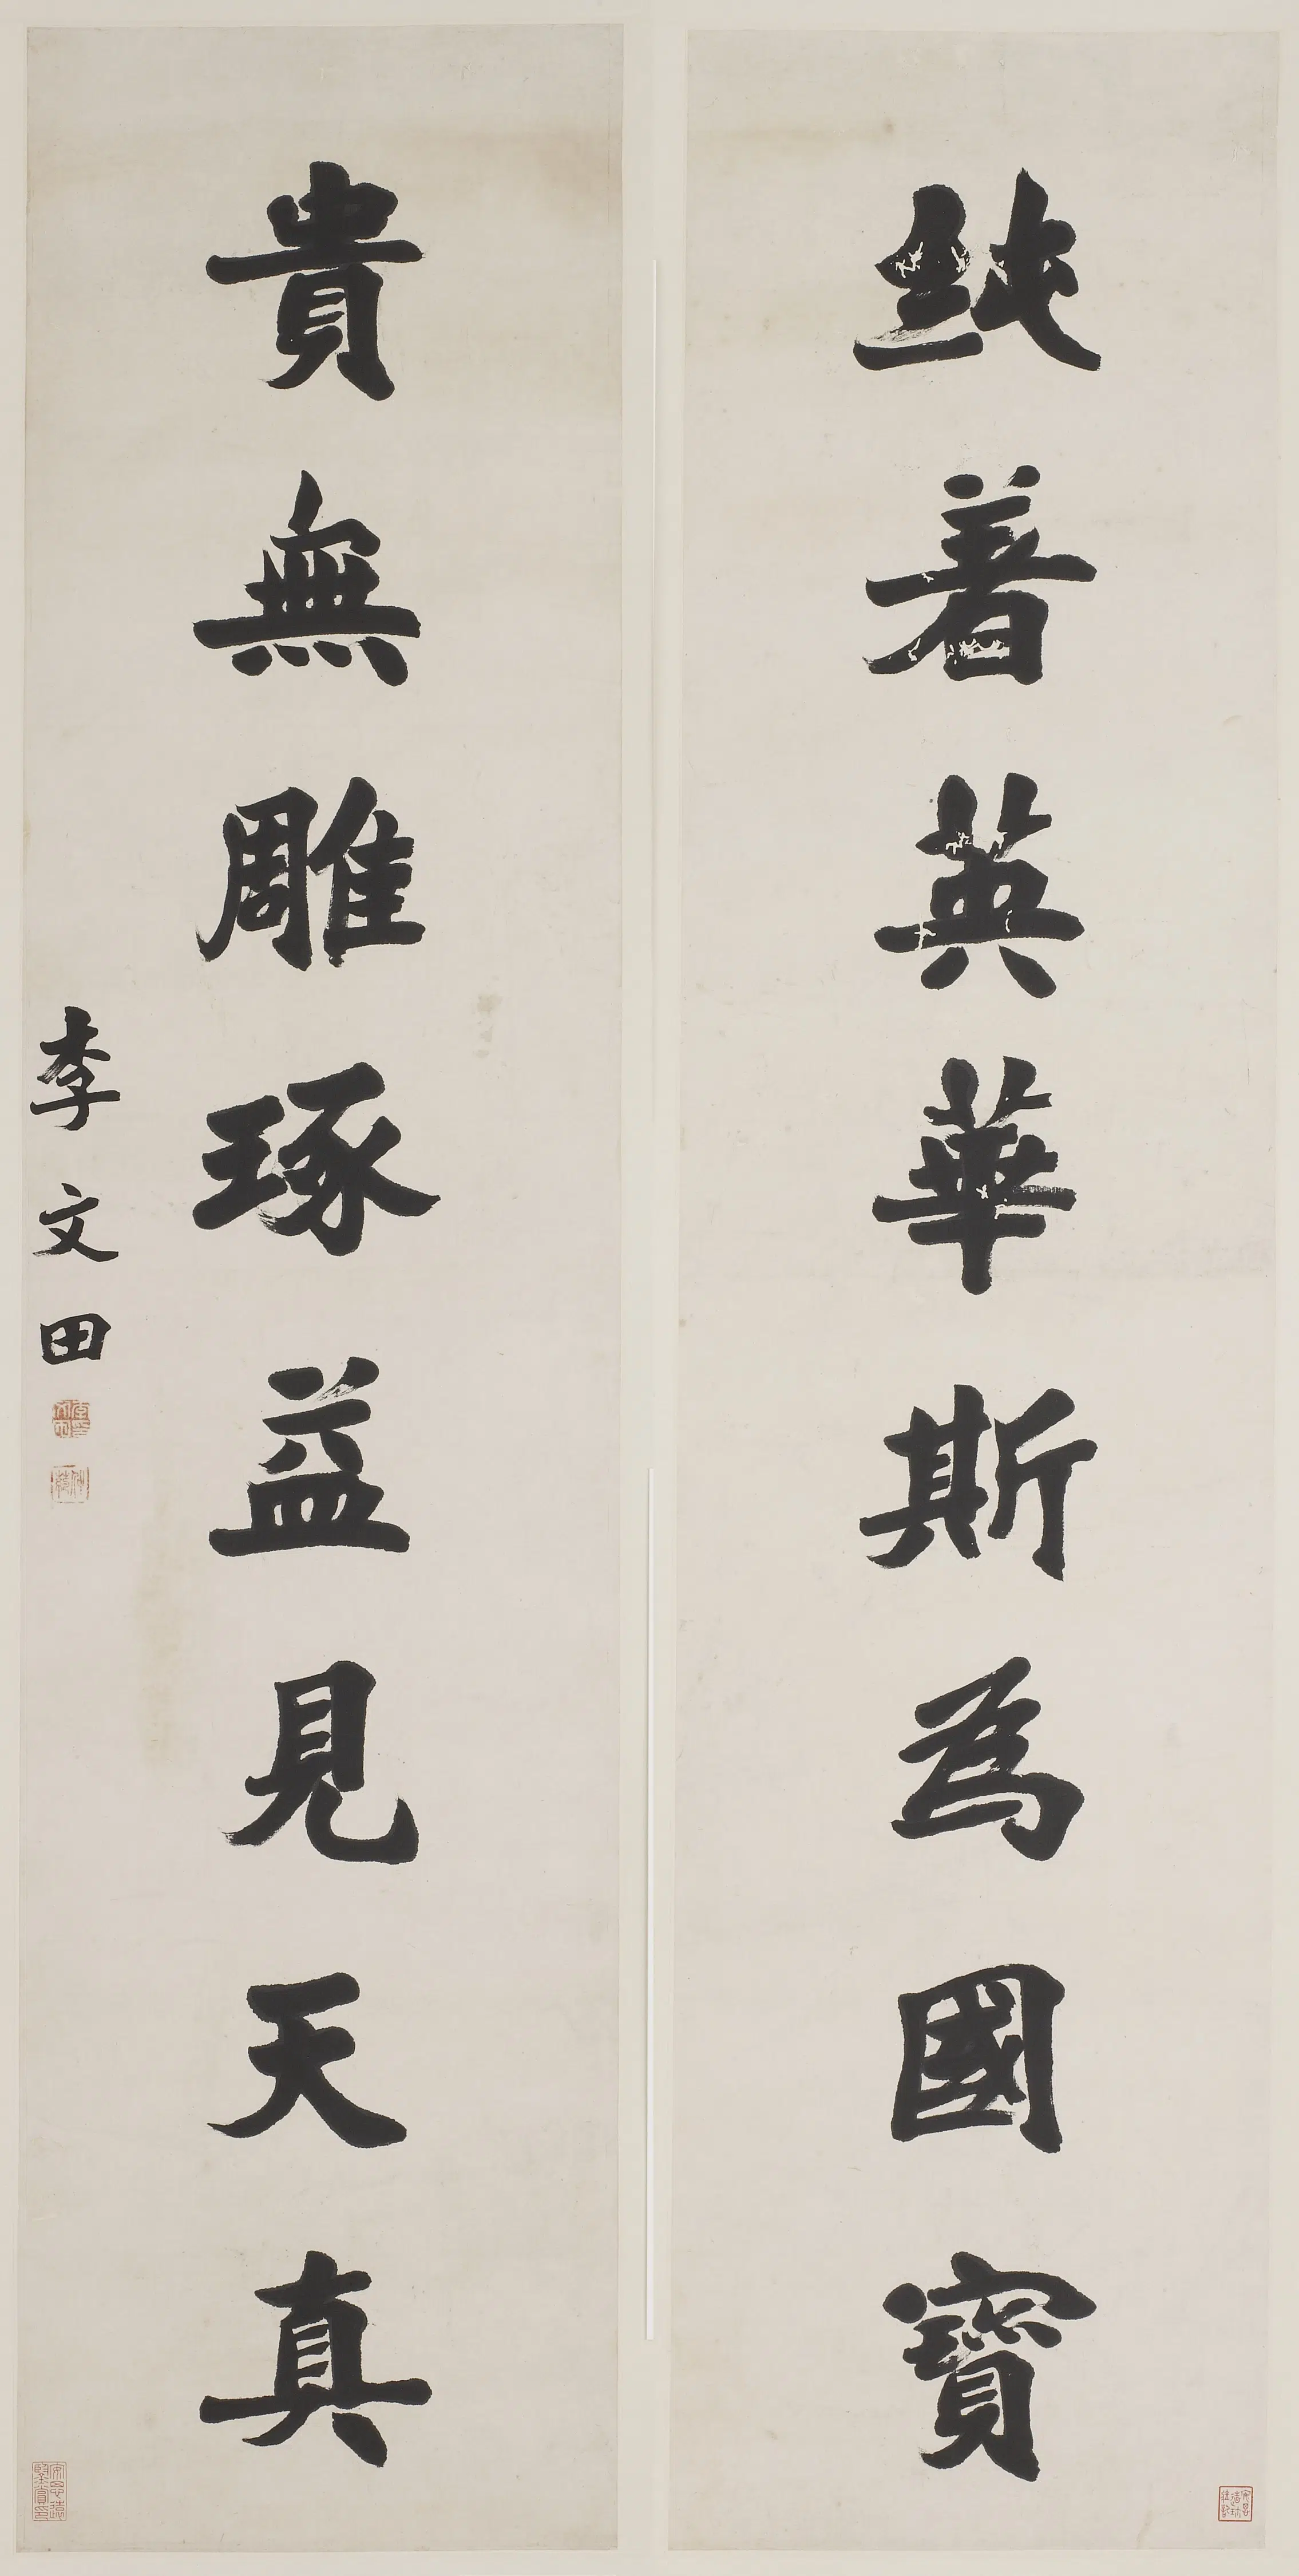 純著英華斯為國寶
貴無雕琢益見天真
李文田